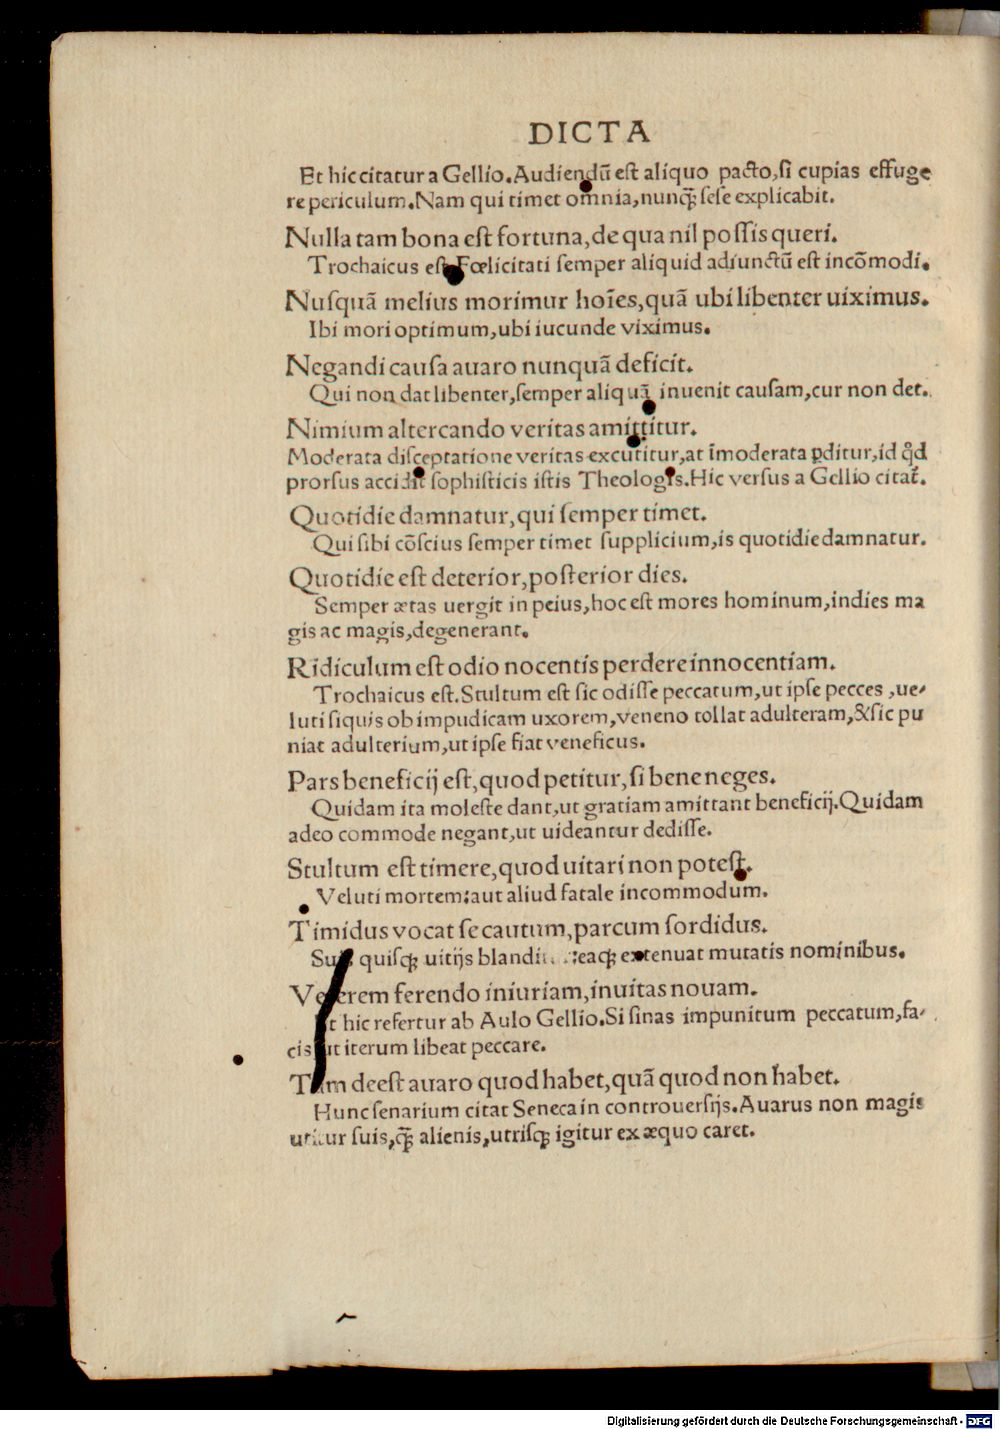 DICTA
Et hic citatur a Gellio. Audiendū est aliquo pacto, si cupias effuge
re periculum. Nam qui timet omnia, nunq̄; sese explicabit.
Nulla tam bona est fortuna, de qua nil possis queri.
Trochaicus est. Fœlicitati semper aliquid adiunctū est incōmodi.
Nusquā melius morimur hoīes, quā ubi libenter uiximus.
Ibi mori optimum, ubi iucunde viximus.
Negandi causa avaro nunquā deficit.
Qui non dat libenter, semper aliquā inuenit causam, cur non det.
Nimium altercando veritas amittitur.
Moderata disceptatione veritas excutitur, at īmoderata ꝑditur, id qd̄
prorsus accidit sophisticis istis Theologis. Hic versus a Gellio citat̄.
Quotidie damnatur, qui semper timet.
Qui sibi cōscius semper timet supplicium, is quotidie damnatur.
Quotidie est deterior, posterior dies.
Semper ætas uergit in peius, hoc est mores hominum, indies ma
gis ac magis, degenerant.
Ridiculum est odio nocentis perdere innocentiam.
Trochaicus est. Stultum est sic odisse peccatum, ut ipse pecces, ue-
luti siquis ob impudicam uxorem, veneno tollat adulteram, & sic pu
niat adulterium, ut ipse fiat veneficus.
Pars beneficij est, quod petitur, si bene neges.
Quidam ita moleste dant, ut gratiam amittant beneficij. Quidam
adeo commode negant, ut uideantur dedisse.
Stultum est timere, quod uitari non potest.
Veluti mortem: aut aliud fatale incommodum.
Timidus vocat se cautum, parcum sordidus.
Suis quisq; uitijs blandi eaq; extenuat mutatis nominibus.
Veterem ferendo iniuriam, inuitas nouam.
Et hic refertur ab Aulo Gellio. Si sinas impunitum peccatum, fa-
cis ut iterum libeat peccare.
Tam deest avaro quod habet, quā quod non habet.
Hunc senarium citat Seneca in controuersijs. Avarus non magis
utitur suis, q̄; alienis, utrisq; igitur ex æquo caret.
Digitalisierung gefördert durch die Deutsche Forschungsgemeinschaft - DFG